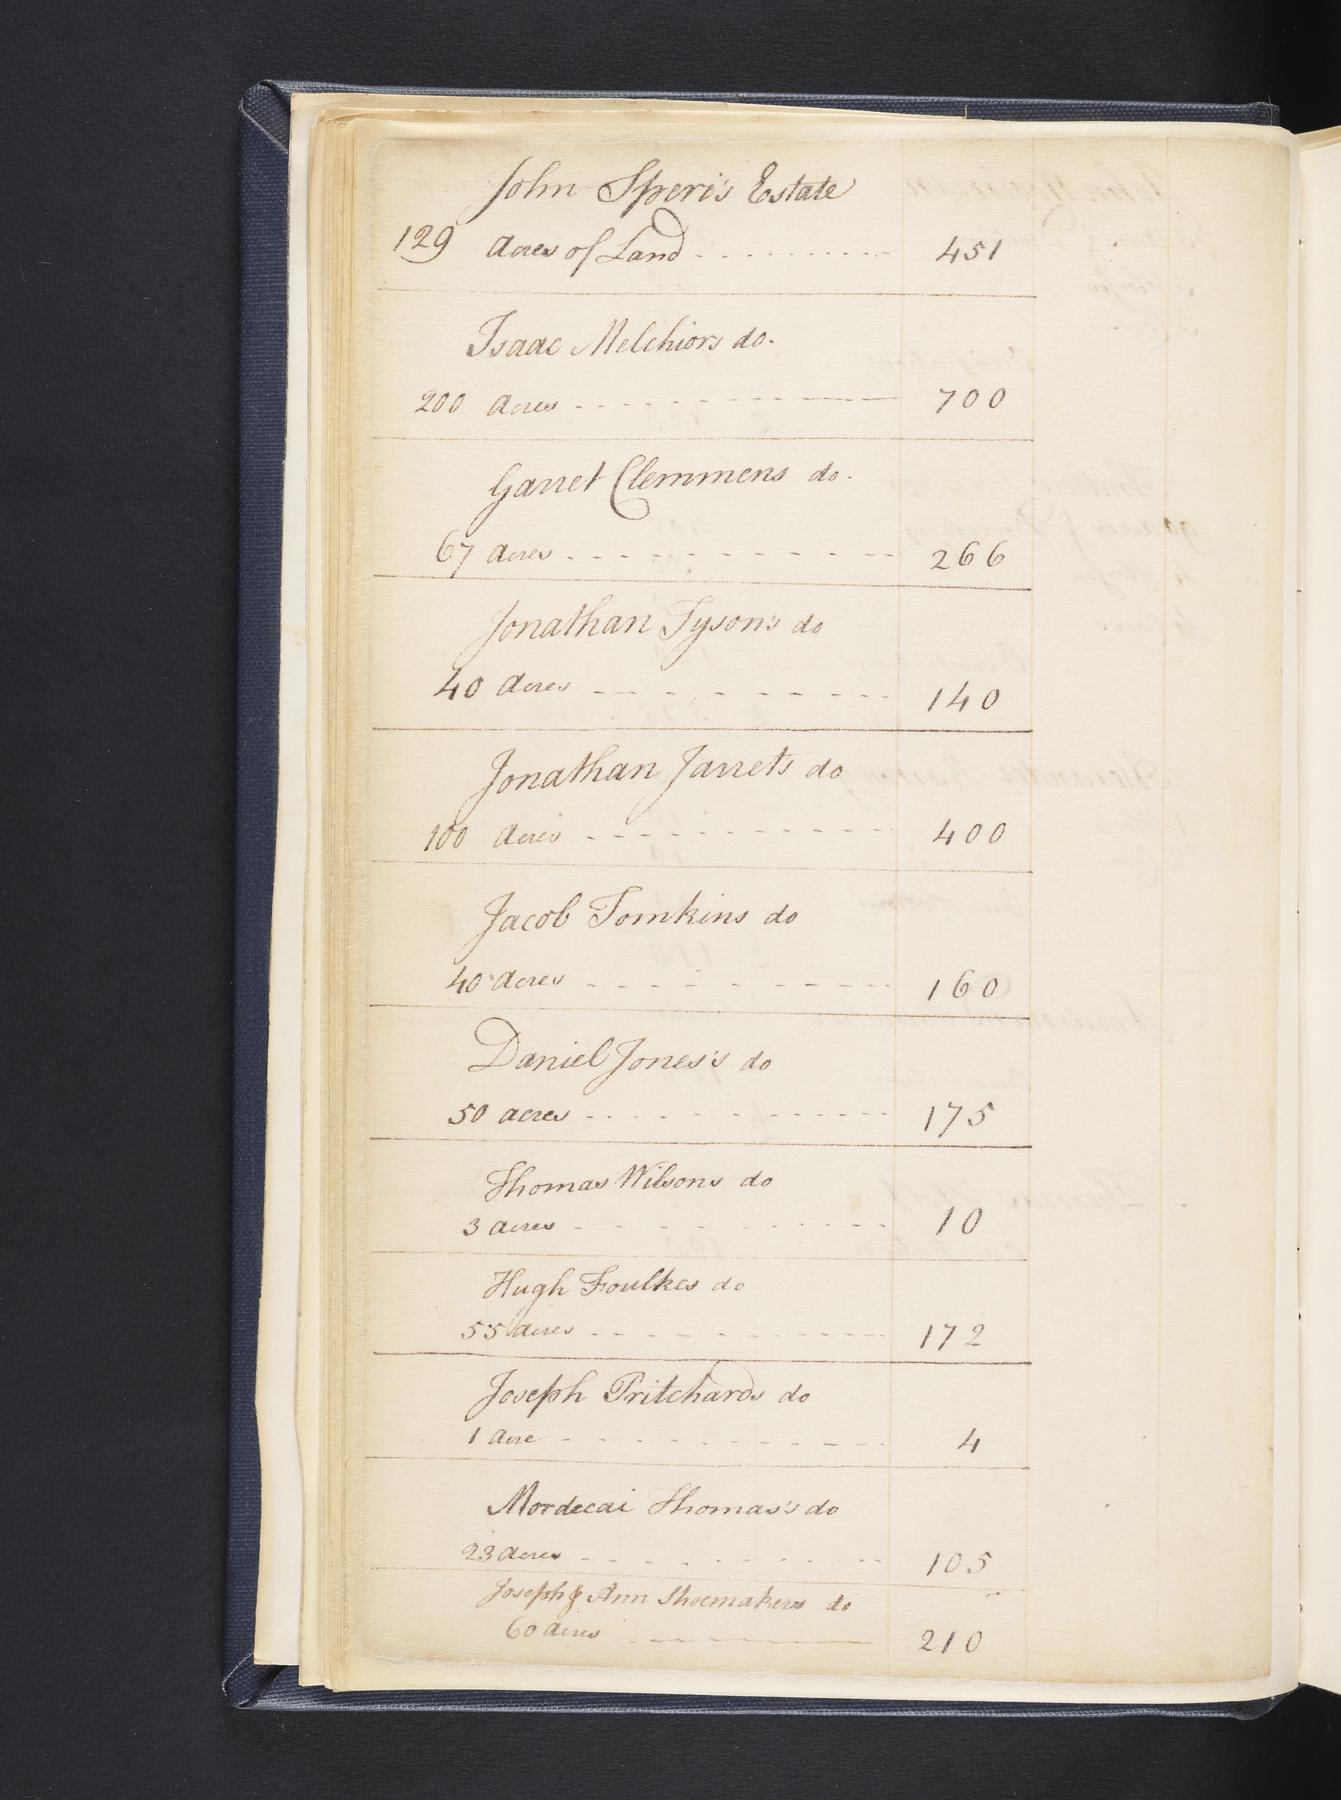 John Speri's Estate
129 Acres of Land 451
Isaac Melchiors do.
200 Acres 700
Garret Clemmens do.
67 Acres 266
Jonathan Tyson's do
40 Acres 140
Jonathan Jarret's do
100 Acres 400
Jacob Tomkins do
40 Acres 160
Daniel Jones's do
50 acres 175
Thomas Wilsons do
3 acres 10
Hugh Foulkes do
55 acres 172
Joseph Pritchards do
1 Acre 4
Mordecai Thomas's do
23 Acres 105
Joseph & Ann Shoemakers do
60 Acres 210